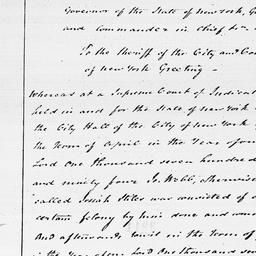 Governor of the State of New York, G
and commander in Chief &c
To the Sheriff of the City and Cou
of New York Greeting –
Whereas at a Supreme Court of Judicat
held in and for the State of New York
the City Hall of the City of New York
the Term of April in the Year of our
Lord One thousand seven hundred
and ninety four Webb, otherwise
called Josiah Stiles was convicted of a
certain felony by him done and
And afterwards in the Term of
in the Year Lord One thousand seve